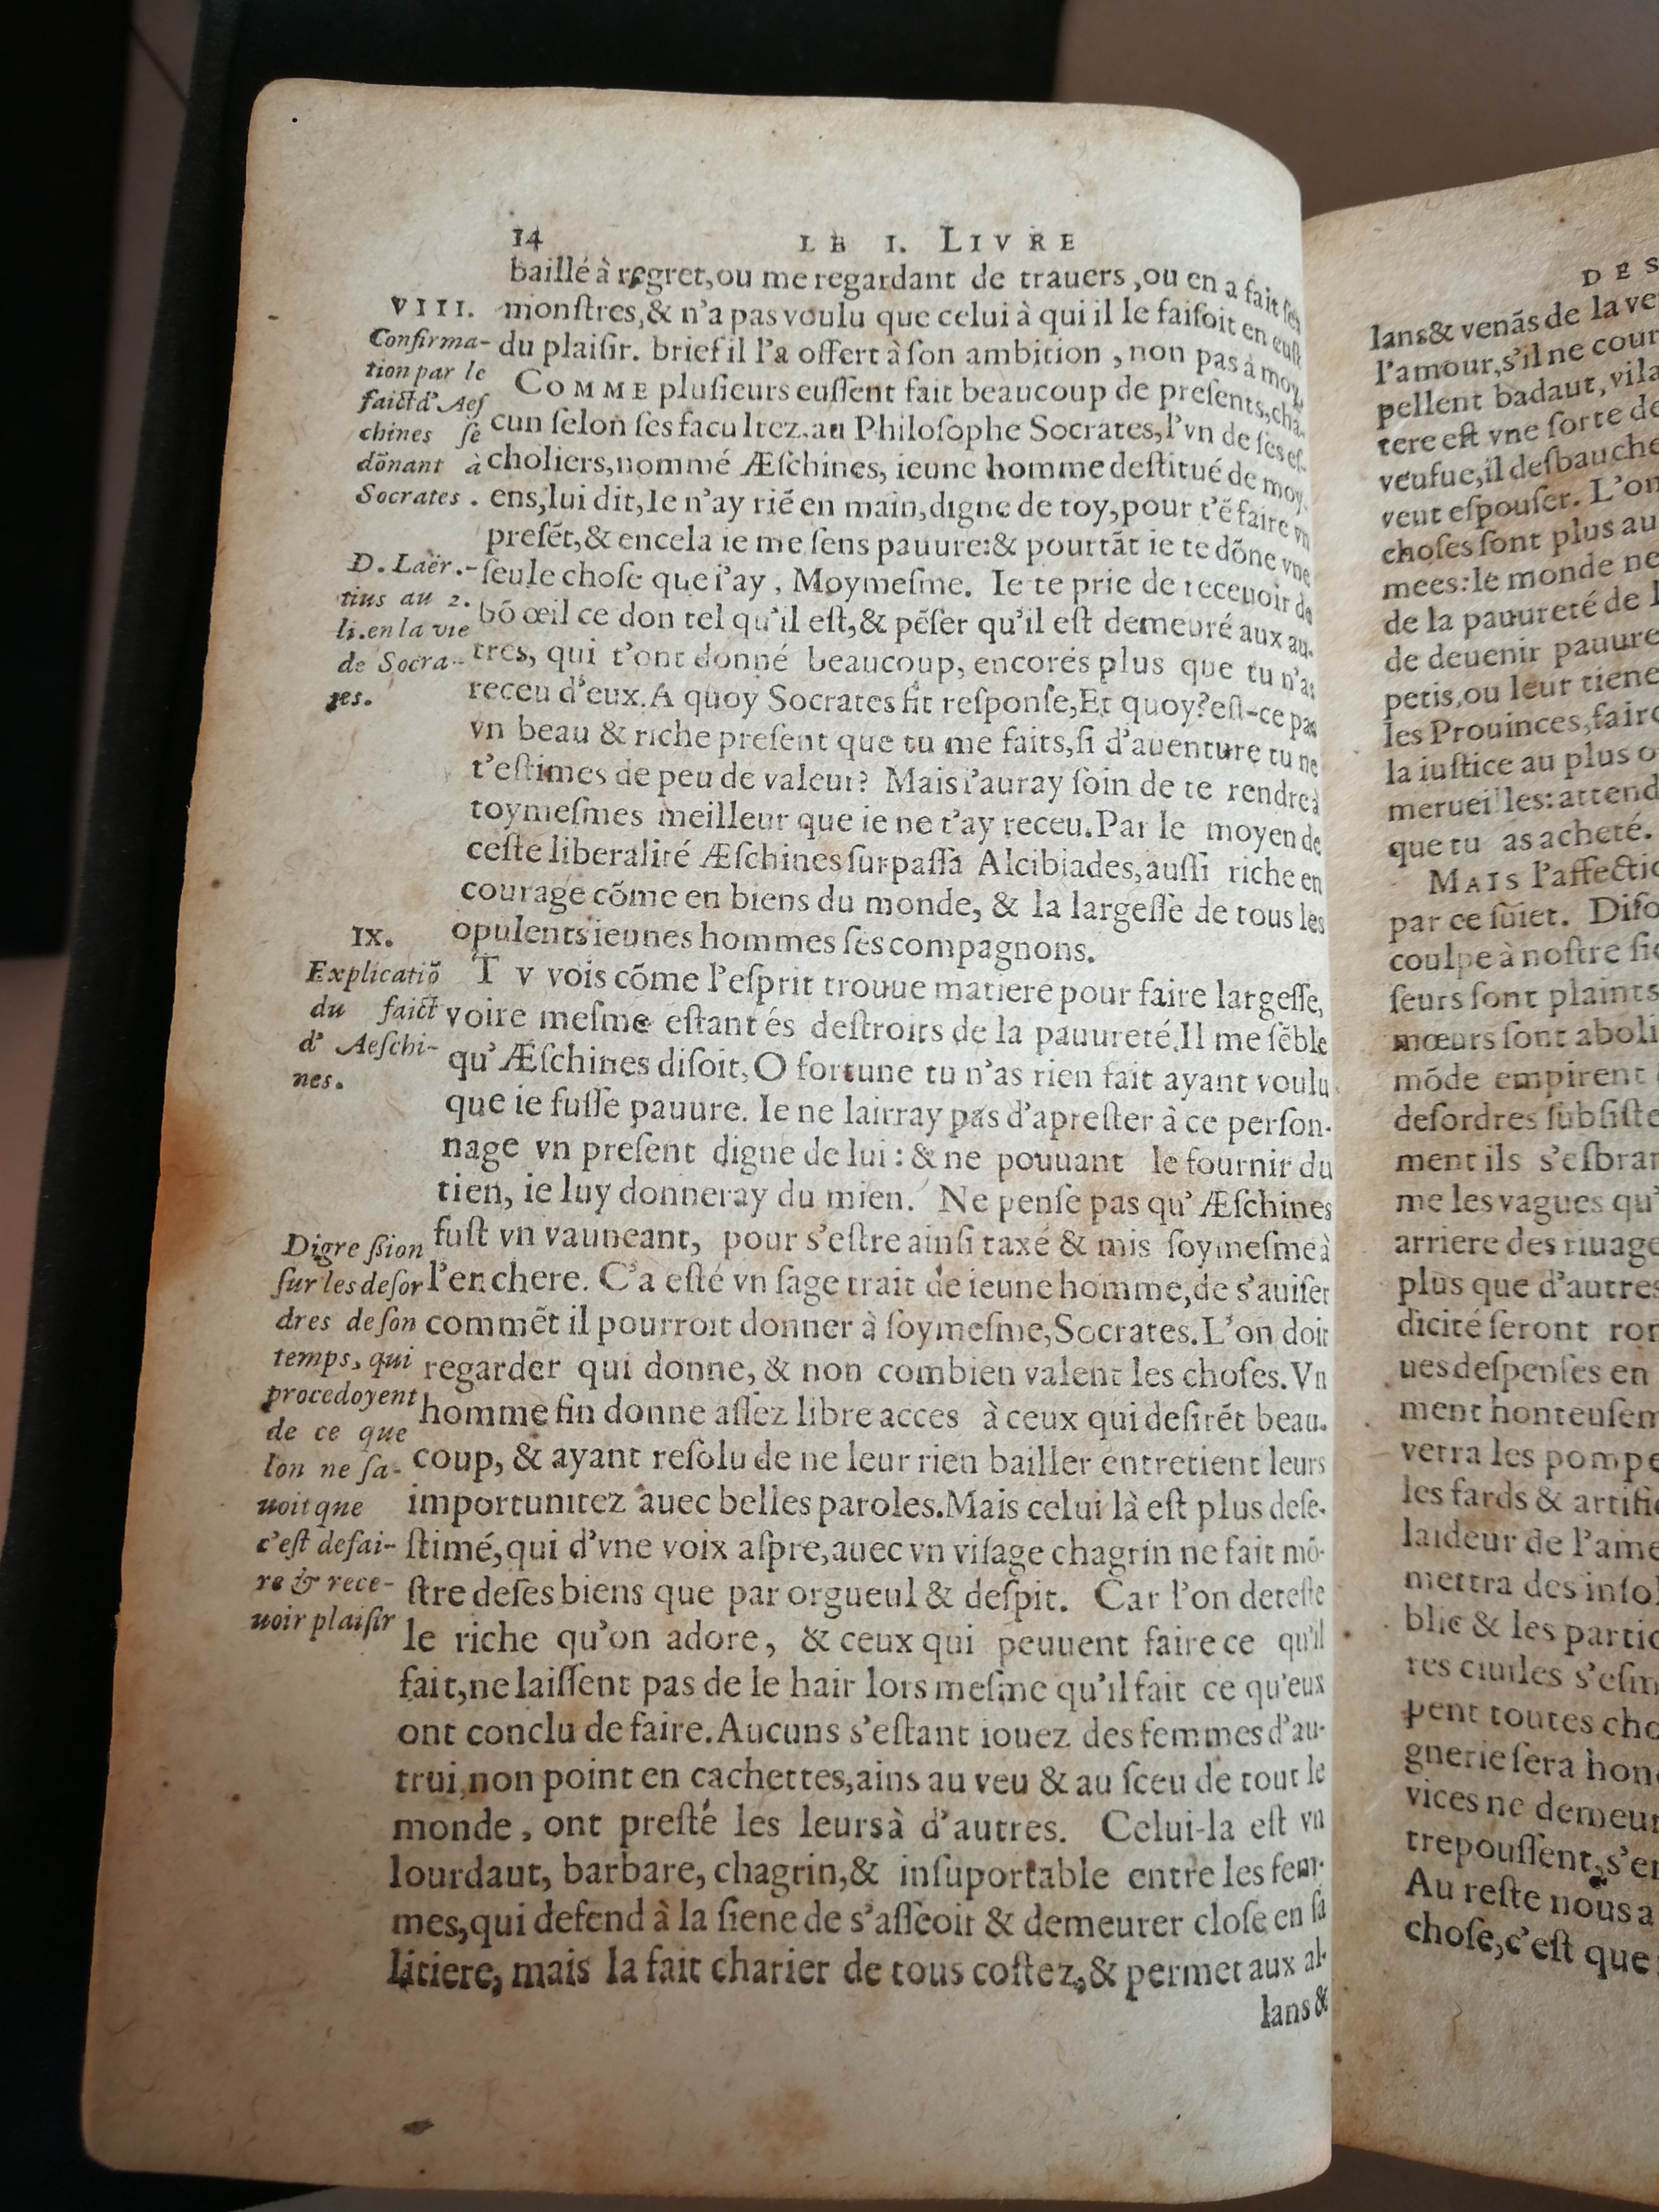 14 LE I. LIVRE
baillé à regret,ou me regardant de trauers ,ou en a fait ses
VIII.
monſtres,& n'a pas voulu que celui à qui il le faiſoit en euſt
du plaiſir. brief il l'a offert à ſon ambition , non pas à moy.
Confirma-
tion par le
faict d'Aeſ
chines ſe
dōnant à
Socrates .
COMME pluſieurs euſſent fait beaucoup de preſents,cha-
cun ſelon ſes facultez.au Philoſophe Socrates,l'vn de ſes eſ-
choliers,nommé Æſchines, ieune homme deſtitué de moy-
ens,lui dit,Ie n'ay riẽ en main,digne de toy,pour t'ẽ faire vn
preſẽt,& encela ie me ſens pauure:& pourtāt ie te dōne vne
ſeule choſe que i'ay , Moymeſme. Ie te prie de receuoir de
bō œil ce don tel qu'il eſt,& pẽſer qu'il eſt demeuré aux au-
tres, qui t'ont donné beaucoup, encores plus que tu n'as
receu d'eux.A quoy Socrates fit reſponſe,Et quoy?eſt-ce pas
vn beau & riche preſent que tu me faits,ſi d'auenture tu ne
t'eſtimes de peu de valeur? Mais i'auray ſoin de te rendre à
toymeſmes meilleur que ie ne t'ay receu.Par le moyen de
ceſte liberalité Æſchines ſurpaſſa Alcibiades,auſſi riche en
courage cōme en biens du monde, & la largeſſe de tous les
opulents ieunes hommes ſes compagnons.
D. Laër.-
tius au 2.
li.en la vie
de Socra-
tes.
IX.
Explicatiō
du faict
d' Aeſchi-
nes.
TV vois cōme l'eſprit trouue matiere pour faire largeſſe,
voire meſme eſtant és deſtroits de la pauureté.Il me ſẽble
qu'Æſchines diſoit, O fortune tu n'as rien fait ayant voulu
que ie fuſſe pauure. Ie ne lairray pas d'apreſter à ce perſon-
nage vn preſent digne de lui : & ne pouuant le fournir du
tien, ie luy donneray du mien. Ne penſe pas qu'Æſchines
fuſt vn vauneant, pour s'eſtre ainſi taxé & mis ſoymeſme à
l'enchere. C'a eſté vn ſage trait de ieune homme,de s'auiſer
commẽt il pourroit donner à ſoymeſme,Socrates.L'on doit
regarder qui donne, & non combien valent les choſes.Vn
homme fin donne aſſez libre acces à ceux qui deſirẽt beau-
coup, & ayant reſolu de ne leur rien bailler entretient leurs
importunitez auec belles paroles.Mais celui là eſt plus deſe-
ſtimé,qui d'vne voix aſpre,auec vn viſage chagrin ne fait mō-
ſtre de ſes biens que par orgueul & deſpit. Car l'on deteſte
le riche qu'on adore, & ceux qui peuuent faire ce qu'il
fait,ne laiſſent pas de le hair lors meſme qu'il fait ce qu'eux
ont conclu de faire.Aucuns s'eſtant iouez des femmes d'au-
trui,non point en cachettes,ains au veu & au ſceu de tout le
monde , ont preſté les leurs à d'autres. Celui-la eſt vn
lourdaut, barbare, chagrin,& inſuportable entre les fem-
mes,qui defend à la ſiene de s'aſſeoir & demeurer cloſe en ſa
litiere, mais la fait charier de tous coſtez,& permet aux al-
lans &
Digreſſion
ſur les deſor
dres de ſon
temps, qui
procedoyent
de ce que
lon ne ſa-
uoit que
c'eſt de fai-
re & rece-
uoir plaiſir
DES
lans& venās de la ve
l'amour,s'il ne cour
pellent badaut, vila
tere eſt vne ſorte de
veufue,il deſbauche
veut eſpouſer. L'on
choſes ſont plus au
mees:le monde ne
de la pauureté de l
de deuenir pauure
petis,ou leur tiene
les Prouinces,faire
la iuſtice au plus o
merueilles:attend
que tu as acheté.
MAIS l'affectio
par ce ſuiet. Diſo
coulpe à noſtre ſie
ſeurs ſont plaints
mœurs ſont aboli
mōde empirent
deſordres ſubſiſte
ment ils s'eſbran
me les vagues qu'
arriere des riuage
plus que d'autres
dicité ſeront ror
ues deſpenſes en
ment honteuſem
verra les pompe
les fards & artifi
laideur de l'ame
mettra des inſol
blic & les partic
res ciuiles s'eſm
pent toutes cho
gnerie ſera hon
vices ne demeur
trepouſſent,s'en
Au reſte nous a
choſe,c'eſt que